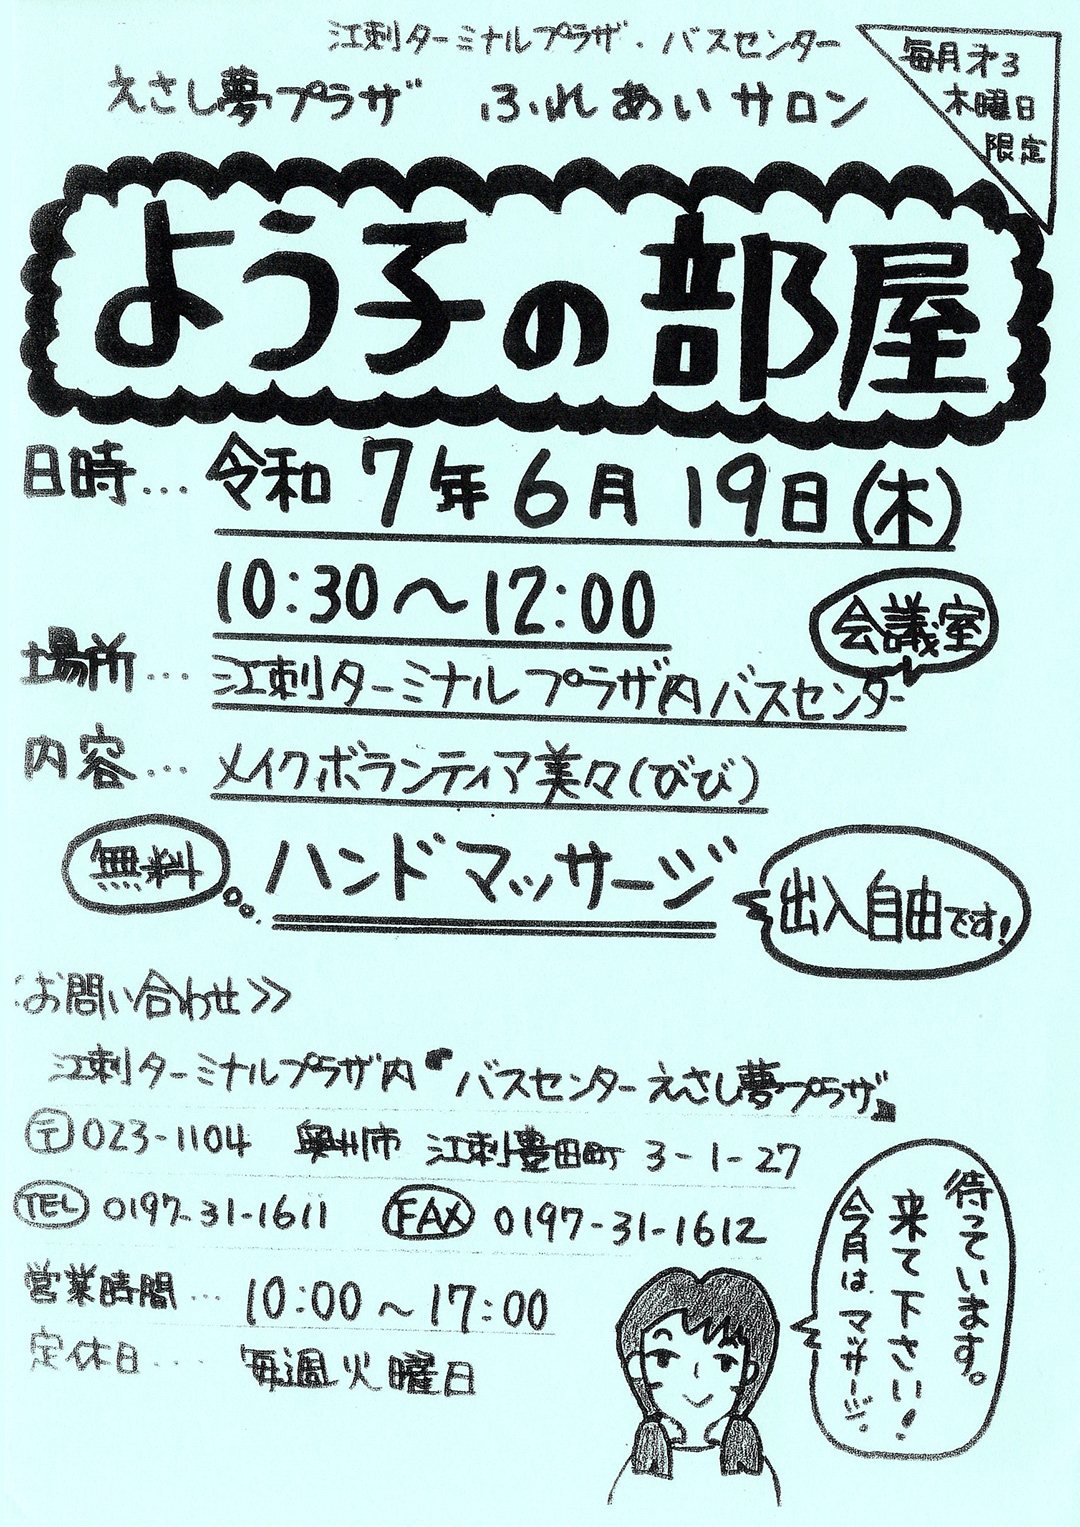 江刺ターミナルプラザ・バスセンター
えさし夢プラザ ふれあいサロン
毎月才3
木曜日
限定
よう子の部屋
日時… 令和7年6月19日(木)
10:30～12:00
会議室
場所… 江刺ターミナルプラザ内バスセンター
内容… メイクボランティア美々(びび)
無料
ハンドマッサージ
出入自由です!
お問い合わせ>>
江刺ターミナルプラザ内『バスセンターえさし夢プラザ』
〒023-1104 奥州市 江刺豊田町 3-1-27
TEL 0197-31-1611 FAX 0197-31-1612
営業時間… 10:00～17:00
定休日… 毎週火曜日
待っています。
来て下さい!
今月は、マッサージ。